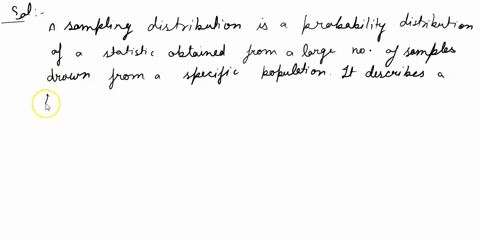 Sol:-
A sampling distribution is a probability distribution
of a statistic obtained from a large no. of samples
drawn from a specific population. It describes a